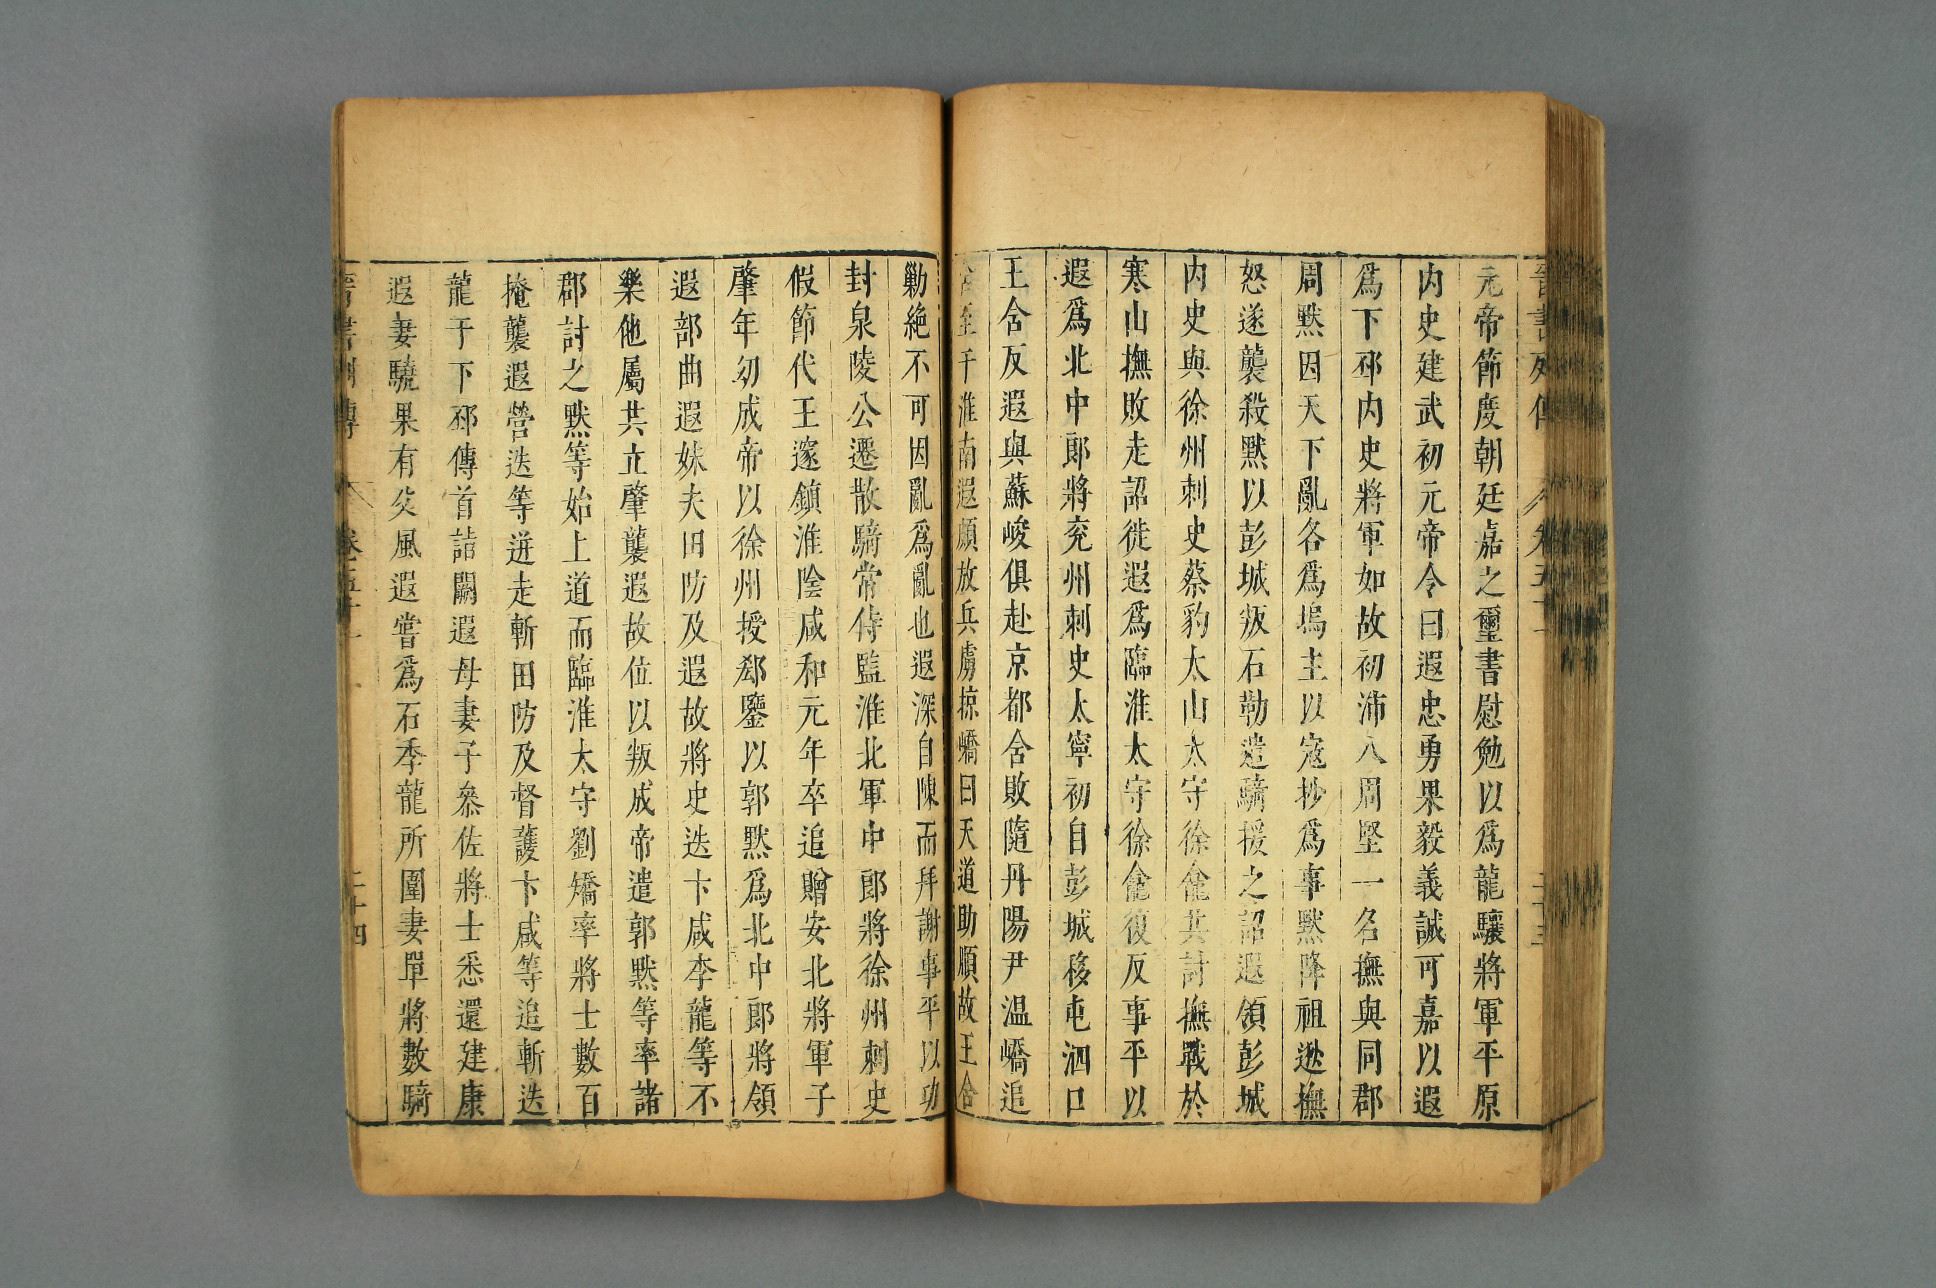 晉書列傳 卷五十一 二十三
元帝節度朝廷嘉之璽書慰勉以爲龍驤將軍平原
内史建武初元帝令曰遐忠勇果毅義誠可嘉以遐
爲下邳内史將軍如故初沛人周堅一名撫與同郡
周默因天下亂各爲塢主以寇抄爲事默降祖逖撫
怒遂襲殺默以彭城叛石勒遣騎援之詔遐領彭城
内史與徐州刺史蔡豹太山太守徐龕共討撫戰於
寒山撫敗走詔徙遐爲臨淮太守徐龕復反事平以
遐爲北中郎將兖州刺史太寧初自彭城移屯泗口
王含反遐與蘇峻俱赴京都含敗隨丹陽尹温嶠追
含至于淮南遐頗放兵虜掠嶠曰天道助順故王含
勦絶不可因亂爲亂也遐深自陳而拜謝事平以功
封泉陵公遷散騎常侍監淮北軍中郎將徐州刺史
假節代王邃鎮淮陰咸和元年卒追贈安北將軍子
肇年㓜成帝以徐州授郄鑒以郭默爲北中郎將領
遐部曲遐妹夫田防及遐故將史迭卞咸李龍等不
樂他屬共立肇襲遐故位以叛成帝遣郭默等率諸
郡討之默等始上道而臨淮太守劉矯率將士數百
掩襲遐營迭等迸走斬田防及督護卞咸等追斬迭
龍于下邳傳首詣闕遐母妻子叅佐將士悉還建康
遐妻驍果有父風遐嘗爲石季龍所圍妻單將數騎
晉書列傳 卷五十一 二十四